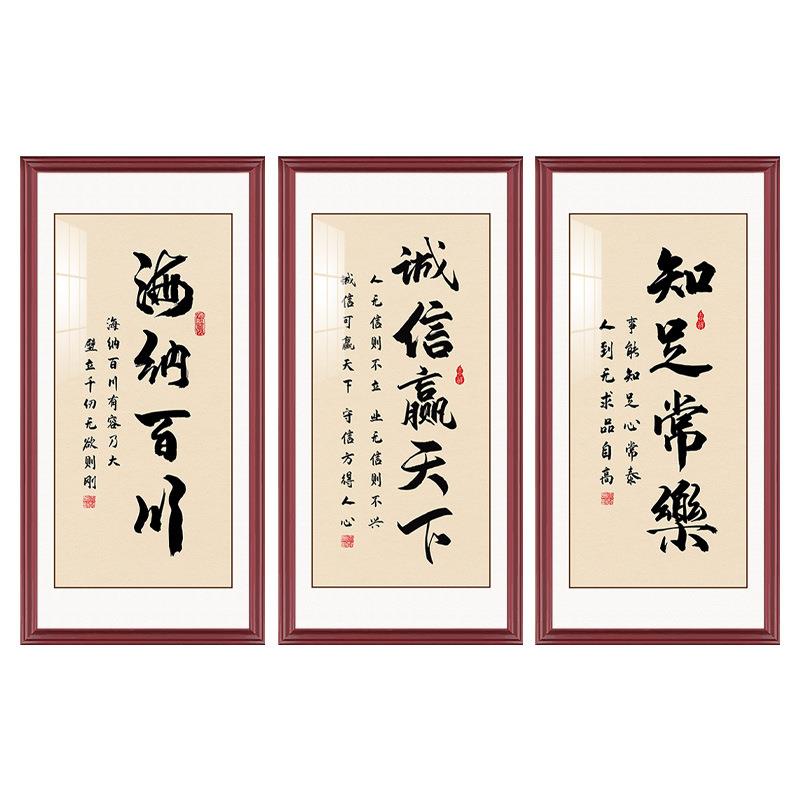 海纳百川
海纳百川有容乃大
壁立千仞无欲则刚
诚信赢天下
人无信则不立 业无信则不兴
诚信可赢天下 守信方得人心
知足常樂
事能知足心常泰
人到无求品自高